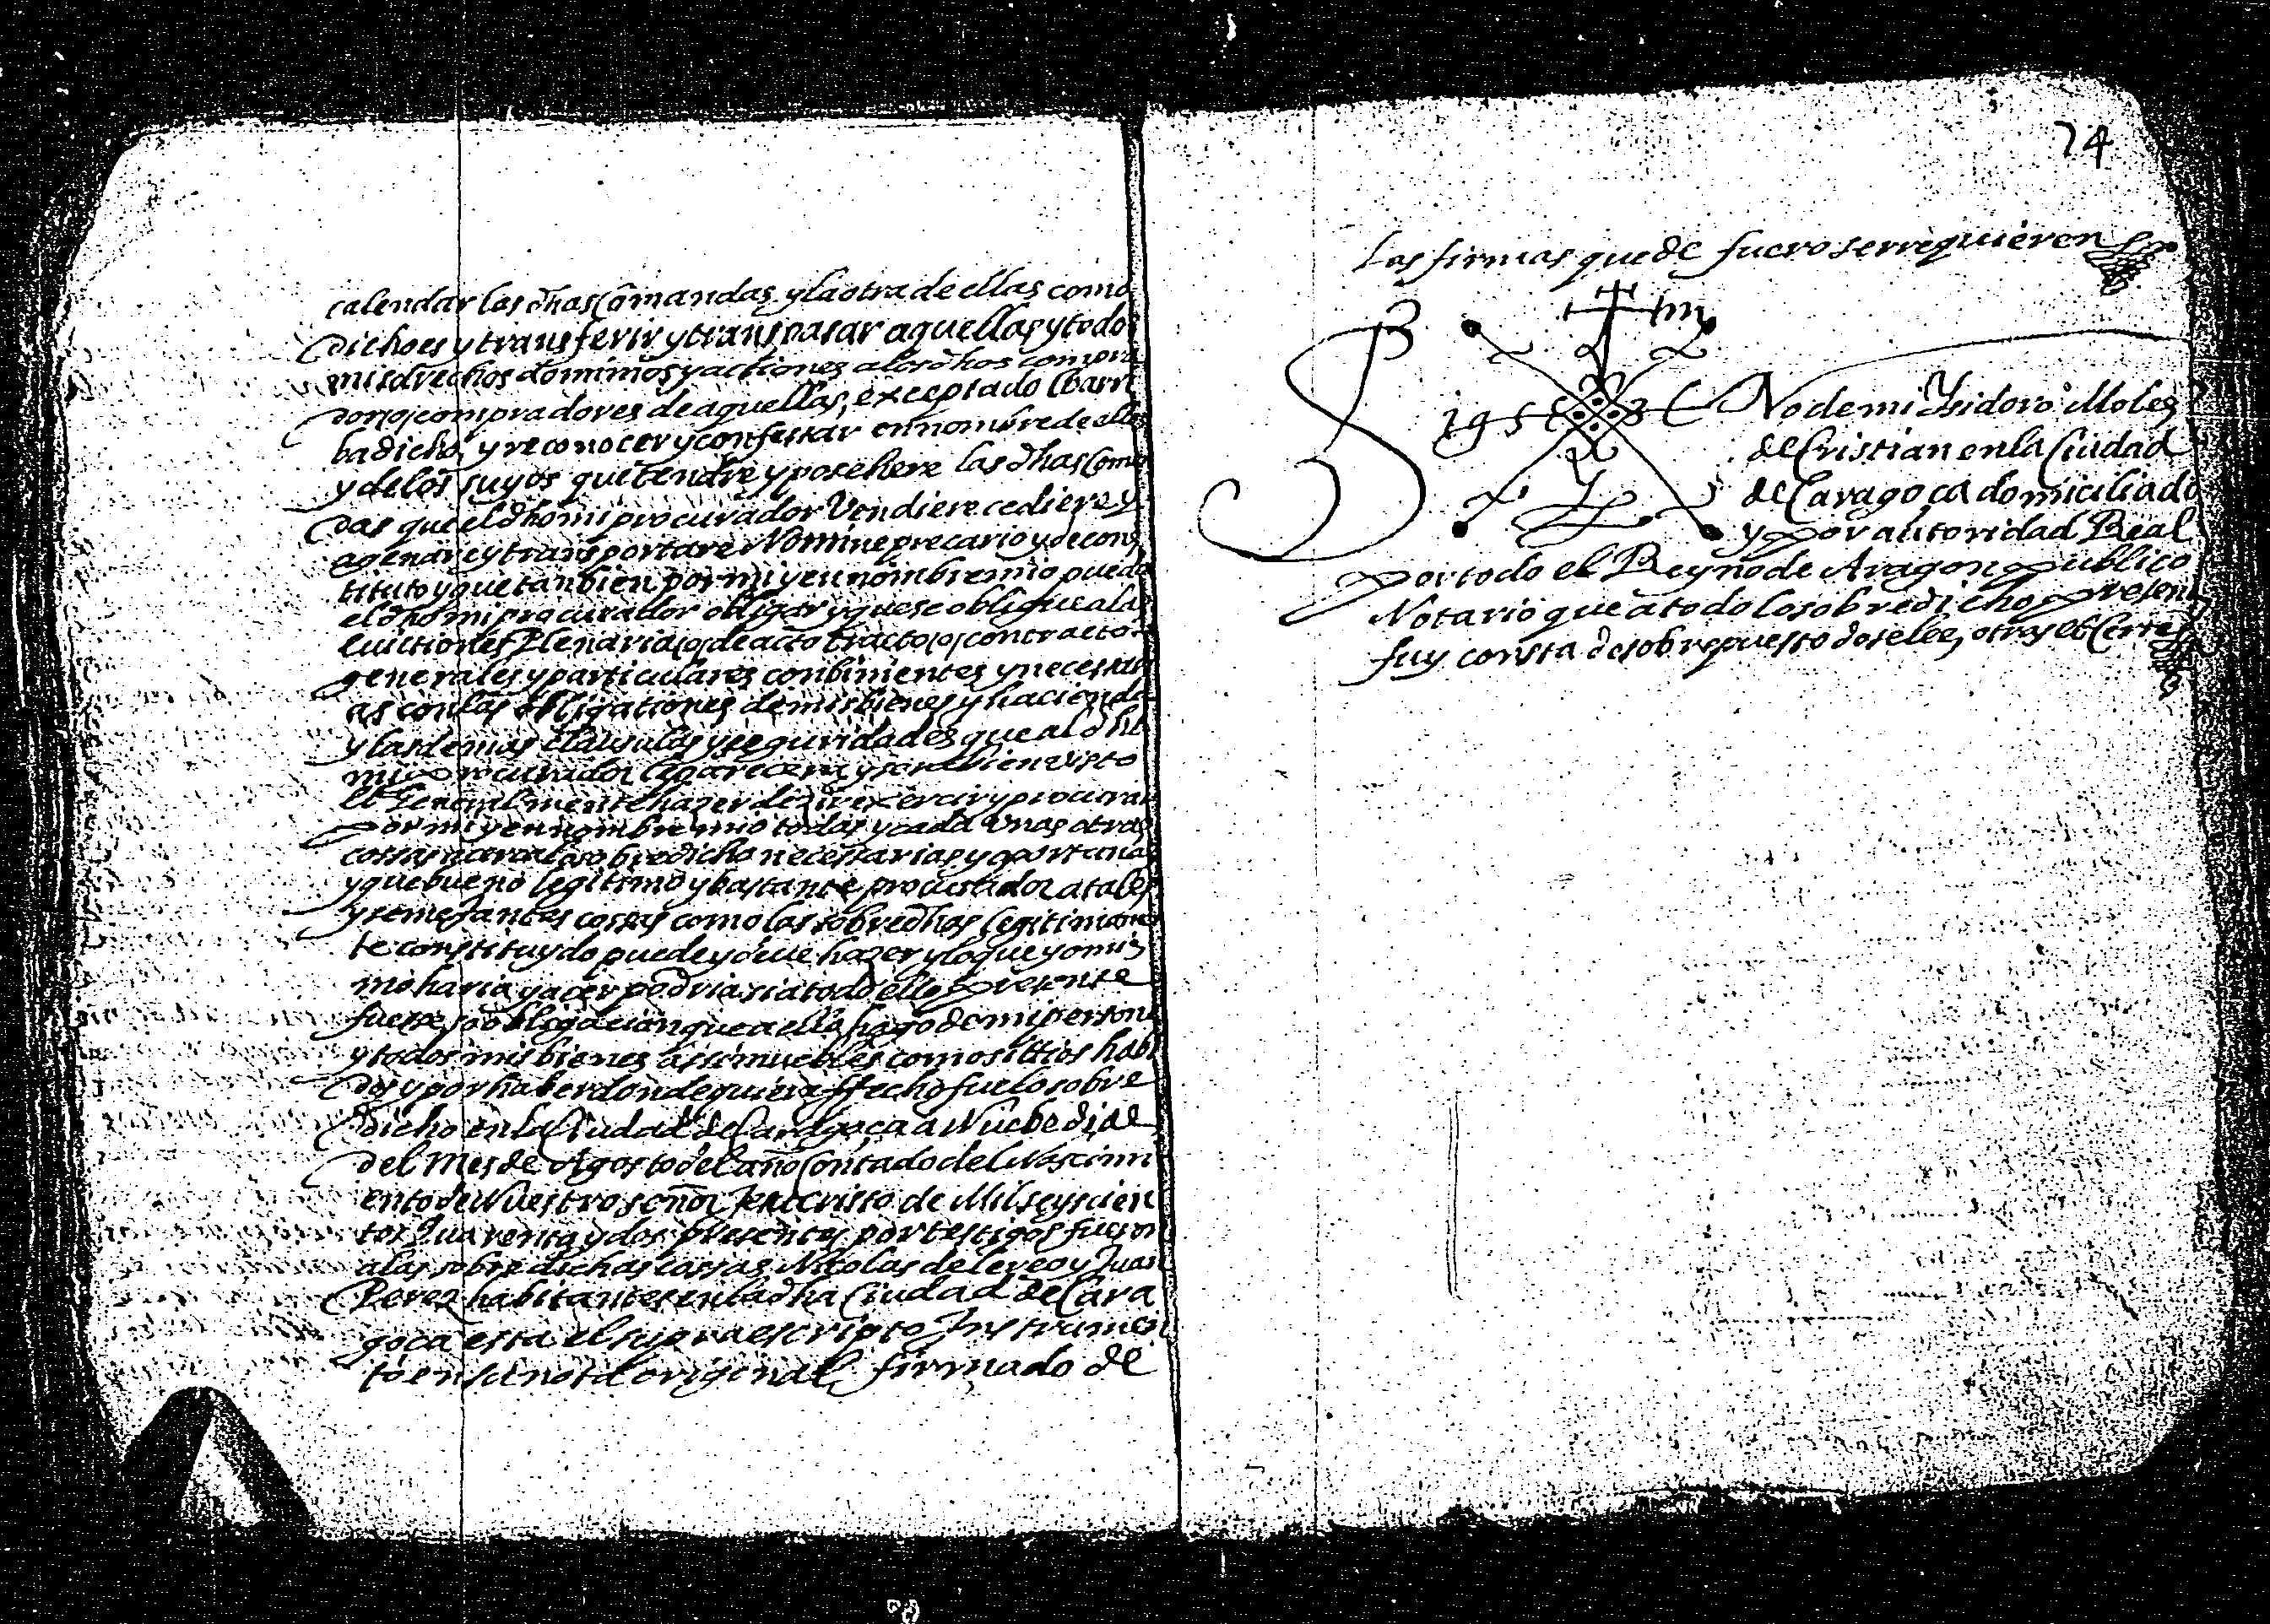 calendar las dhas Comandas y la otra de ellas como
dicho es y transferir y transpasar aquellas y todos
mis drechos dominios y actiones a los dhos compra
dor o compradores de aquellas, exceptado
ba dicho, y reconocer y confessar en nombre de ellos
y de los suyos que tendre y posehere las dhas Coman
das que el dho mi procurador Vendiere cediere y
agenare y transportare Nomine precario y de cons
tituto y que tanbien por mi y en nombre mio pueda
el dho mi procurador obligar y que se obligue a las
euictiones Plenaria o de acto tracto o contracto
generales y particulares conbinientes y necessari
as con las obligationes de mis bienes y hacienda
y las demas clausulas y seguridades que al dho
mi procurador le parecera y sera bien visto
Et Generalmente hazer dezir exercir y procurar
por mi y en nombre mio todas y cada Unas otras
cossas acerca lo sobredicho necessarias y oportunas
y que bueno legitimo y bastante procurador a tales
y semejantes cossas como las sobredhas legitimamen
te constituydo puede y deue hazer y lo que yo mis
mo haria y acer podria si a todo ello presente
fuesse so obligacion que a ello hago de mi persona
y todos mis bienes assi muebles como sittios habi
dos y por haber donde quiera ffecho fue lo sobre
dicho en la Ciudad de Caragoça a Nuebe dias
del Mes de Agosto del año Contado del Nascimi
ento de Nuestro señor Jesu Cristo de Mil seyscien
tos Quarenta y dos presentes por testigos fueron
a las sobredichas cossas Nicolas de lereo y Juan
Perez habitantes en la dha Ciudad de Cara
goca esta el supraescripto Instrumen
to en su nota original firmado de
74
Las firmas que de fuero se rrequieren
Sig No de mi Ysidoro Moles
de Cristian en la Ciudad
de Caragoça domiciliado
y por autoridad Real
por todo el Reyno de Aragon publico
Notario que a todo lo sobredicho present
fuy consta de sobrepuesto dose lee, otros et Cerre